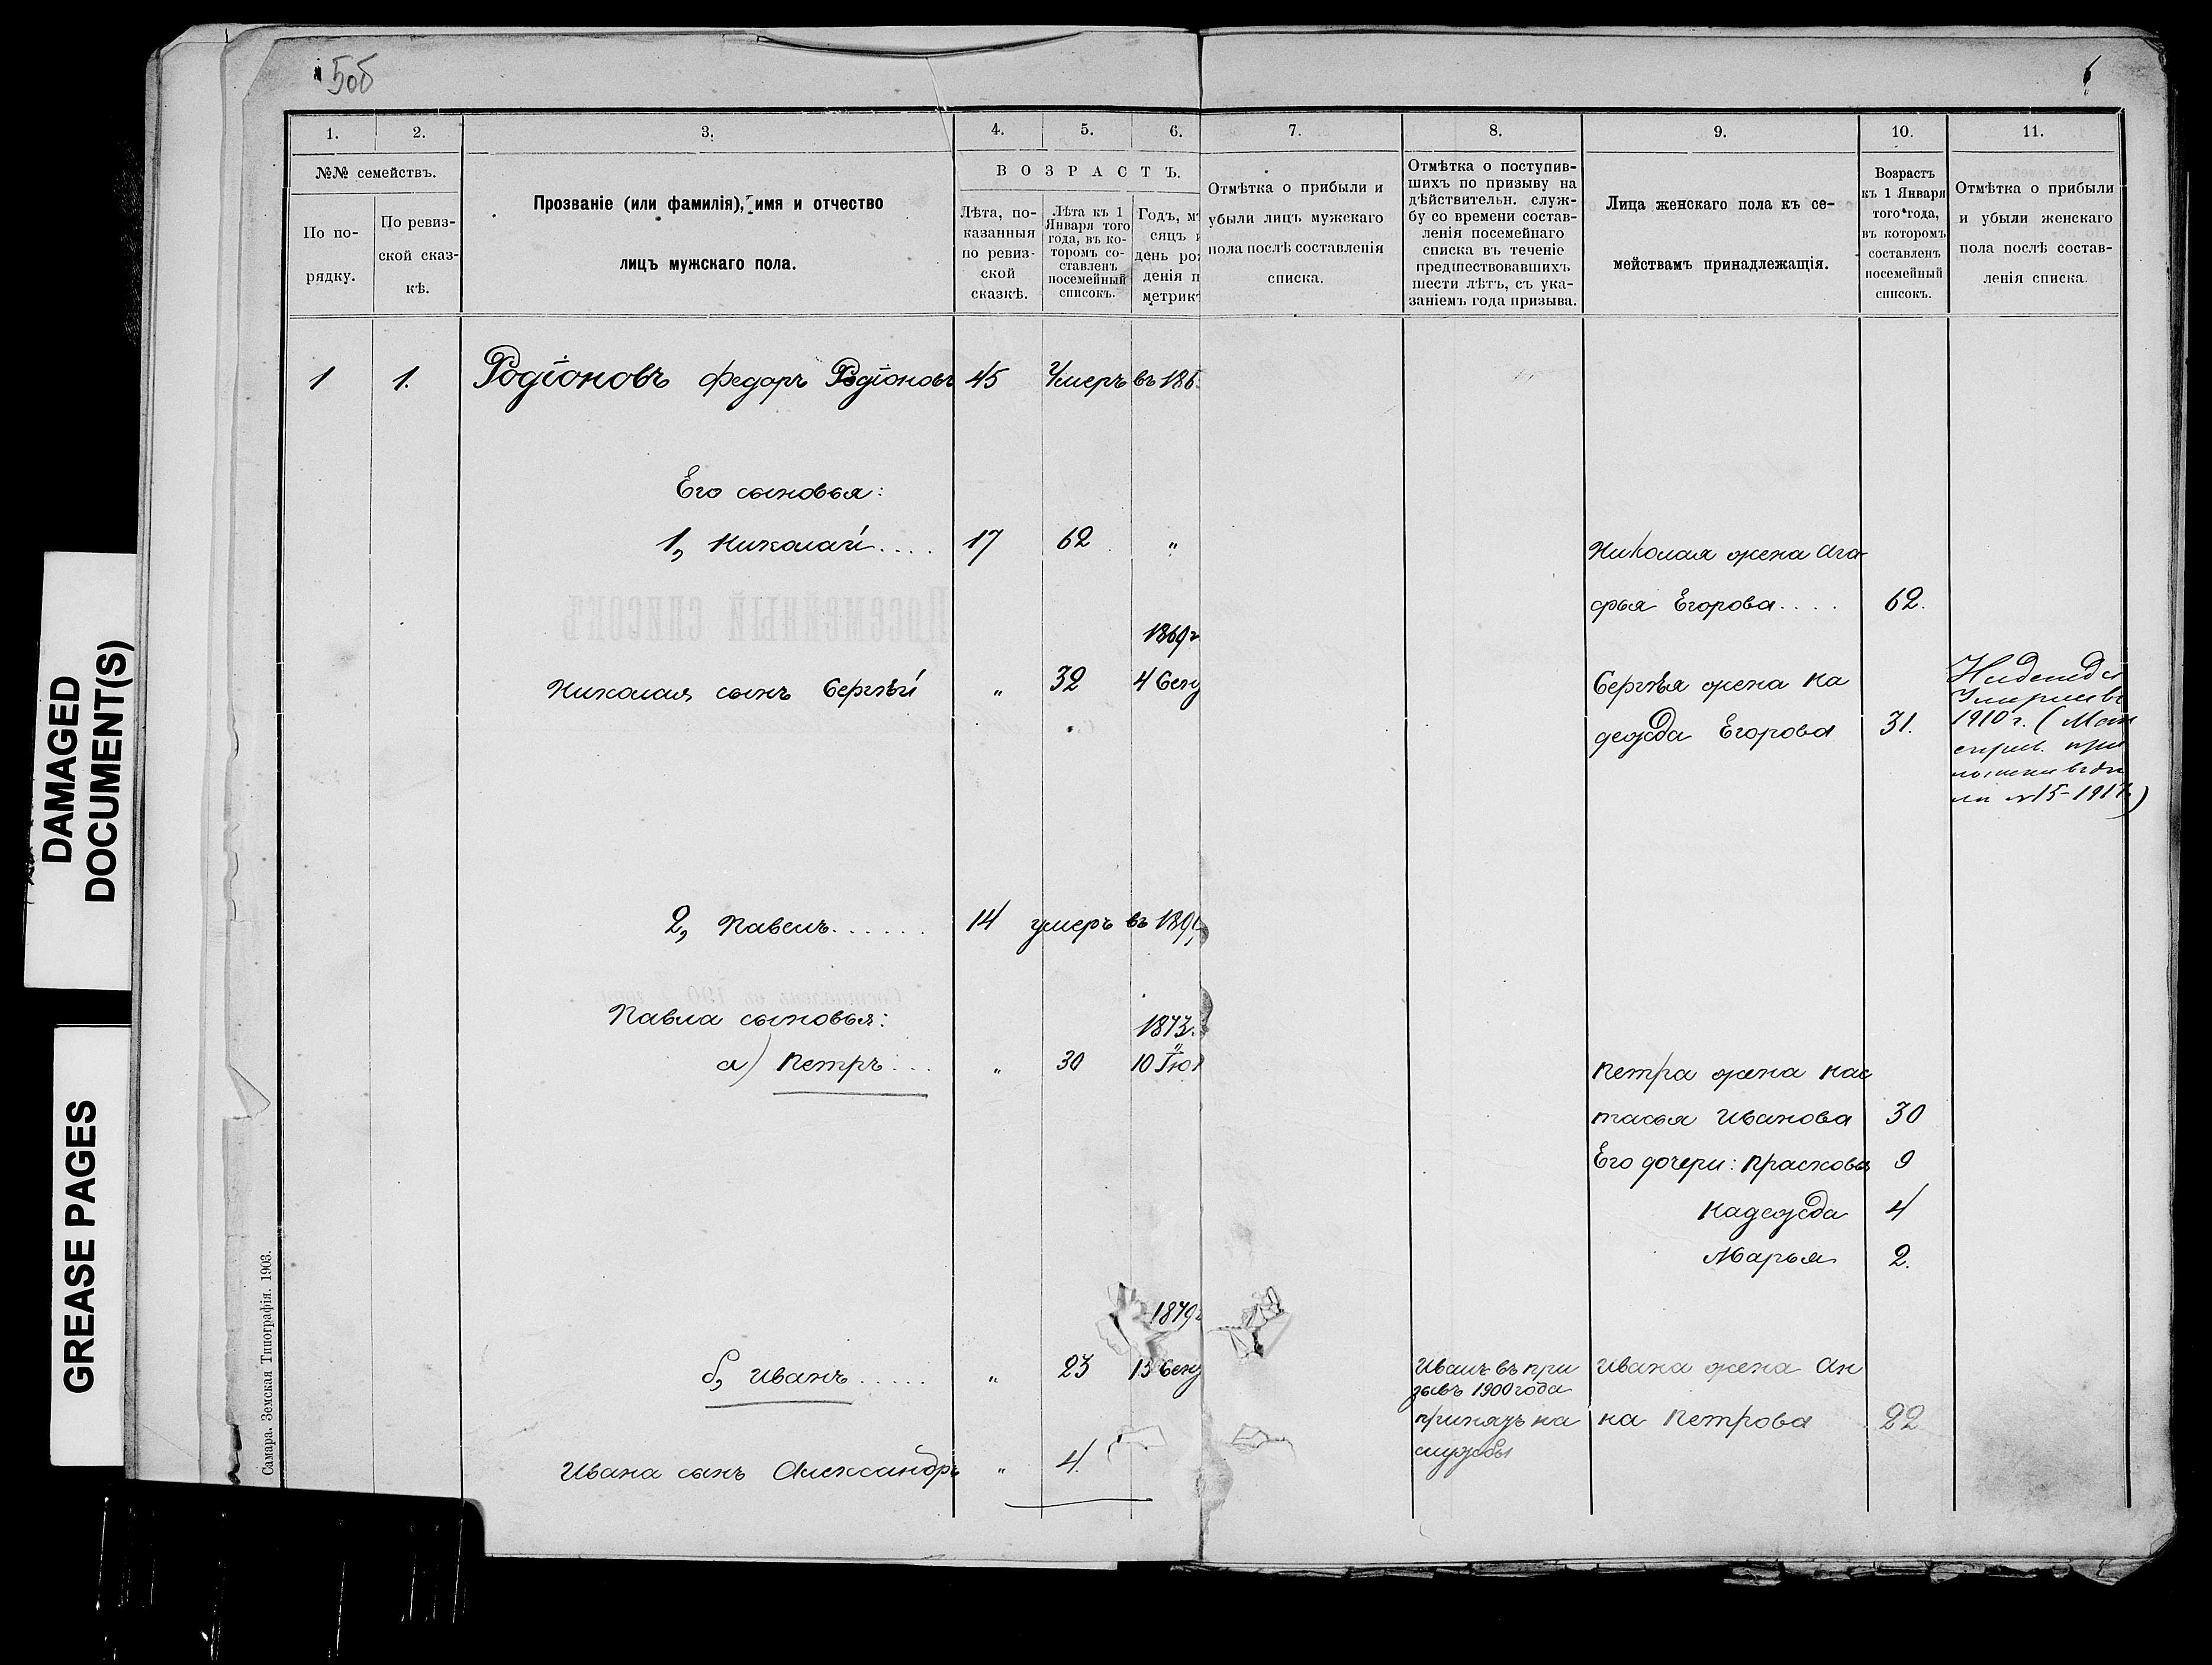 5об
6
1. 2. 3. 4. 5. 6. 7. 8. 9. 10. 11.
№№ семействъ.
По по-
рядку.
По ревиз-
ской сказ-
кѣ.
Прозваніе (или фамилія), имя и отчество
лицъ мужскаго пола.
ВОЗРАСТЪ.
Лѣта, по-
казанныя
по ревиз-
ской
сказкѣ.
Лѣта къ 1
Января того
года, въ ко-
торомъ со-
ставленъ
посемейный
списокъ.
Годъ, мѣ
сяцъ и
день рож
денія п
метрик
Отмѣтка о прибыли и
убыли лицъ мужскаго
пола послѣ составленія
списка.
Отмѣтка о поступив-
шихъ по призыву на
дѣйствительн. служ-
бу со времени состав-
ленія посемейнаго
списка въ теченіе
предшествовавшихъ
шести лѣтъ, съ ука-
заніемъ года призыва.
Лица женскаго пола къ се-
мействамъ принадлежащія.
Возрастъ
къ 1 Января
того года,
въ которомъ
составленъ
посемейный
списокъ.
Отмѣтка о прибыли
и убыли женскаго
пола послѣ состав-
ленія списка.
1 1. Родіоновъ Федоръ Родіоновъ 45 Умеръ въ 186
Его сыновья:
1, Николай.... 17 62 "
Николая жена Ага-
фья Егорова.... 62.
1869г
Николая сынъ Сергѣй " 32 4 Сен
Сергѣя жена На
дежда Егорова 31.
Надежда
Умерла въ
1910 г. (
№15-191
2, Павелъ...... 14 умеръ въ 189
Павла сыновья:
1873.
а) Петръ... " 30 10 Іюл
Петра жена Нас
тасья Иванова 30
Его дочери: Прасковья 9
Надежда 4
Марья 2.
1879г
б, Иванъ..... " 23 15 Сен
Иванъ въ при
зывъ 1900 года
принятъ на
службы
Ивана жена Ан
на Петрова 22
Ивана сынъ Александръ " 4.
Самара. Земская Типографія. 1903.
DAMAGED
DOCUMENT(S)
GREASE PAGES